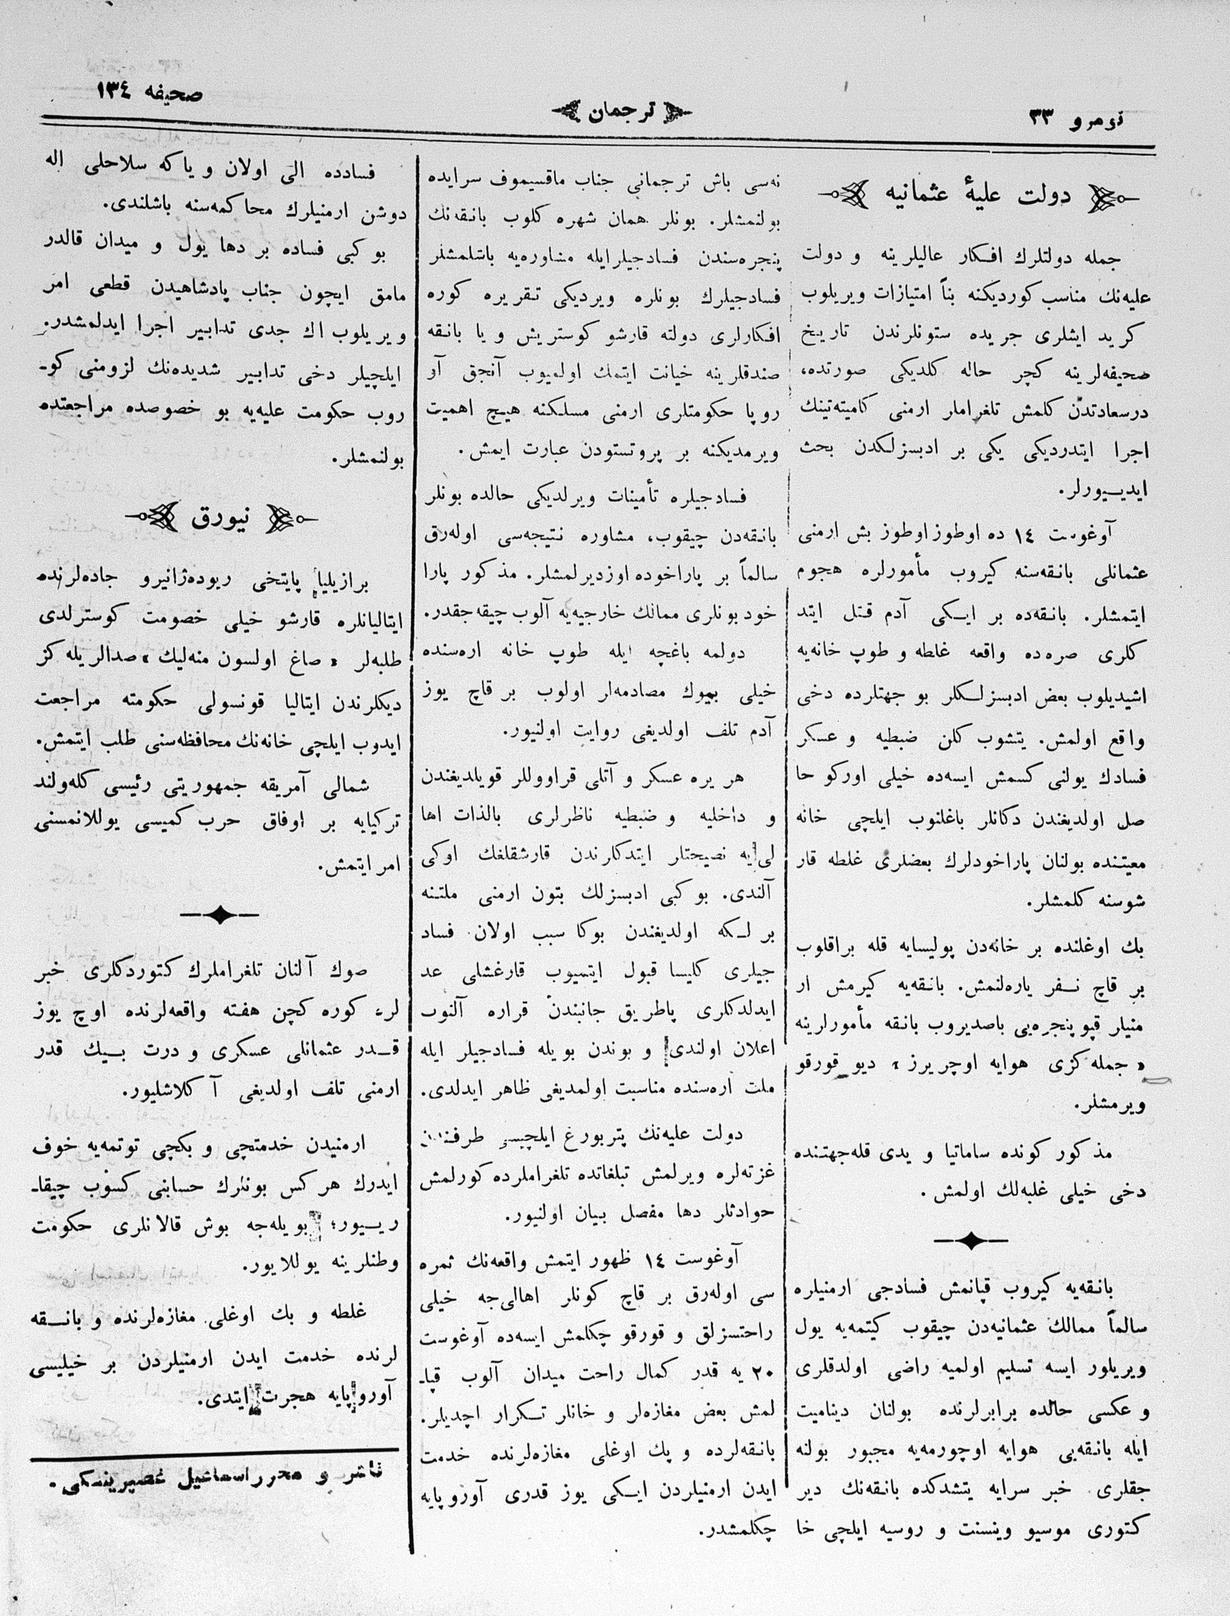 نومرو ۳۳
ترجمان
صحیفه ۱۳٤
دولت علیهٔ عثمانیه
جمله دولتلرك افكار عالیلرینه و دولت
علیه‌نك مناسب كوردیكنه بنأ امتیازات ویریلوب
كرید ایشلری جریده ستونلرندن تاریخ
صحیفه‌لرینه كچر حاله كلدیكی صورتده،
درسعادتدن كلمش تلغرامار ارمنی كامیته‌تینك
اجرا ایتدردیكی یكی بر ادبسزلكدن بحث
ایدییورلر.
آوغوست ۱٤ ده اوطوز اوطوز بش ارمنی
عثمانلی بانقه‌سنه كیروب مأمورلره هجوم
ایتمشلر. بانقه‌ده بر ایكی آدم قتل ایتد
كلری صره‌ده واقعه غلطه و طوپ خانه‌یه
اشیدیلوب بعض ادبسزلكلر بو جهتلرده دخی
واقع اولمش. یتشوب كلن ضبطیه و عسكر
فسادك یولنی كسمش ایسه‌ده خیلی اوركو حا
صل اولدیغندن دكانلر باغلنوب ایلچی خانه
معیتنده بولنان پاراخودلرك بعضلری غلطه قار
شوسنه كلمشلر.
بك اوغلنده بر خانه‌دن پولیسایه قله براقلوب
بر قاچ نفر یاره‌لنمش. بانقه‌یه كیرمش ار
منیلر قپو پنجره‌یی باصدیروب بانقه مأمورلرینه
«جمله‌كزی هوایه اوچریرز» دیو قورقو
ویرمشلر.
مذكور كونده ساماتیا و یدی قله‌جهتنده
دخی خیلی غلبه‌لك اولمش.
بانقه‌یه كیروب قپانمش فسادجی ارمنیلره
سالماً ممالك عثمانیه‌دن چیقوب كیتمه‌یه یول
ویریلور ایسه تسلیم اولمیه راضی اولدقلری
و عكسی حالده برابرلرنده بولنان دینامیت
ایله بانقه‌یی هوایه اوچورمه‌یه مجبور بولنه
جقلری خبر سرایه یتشدكده بانقه‌نك دیر
كتوری موسیو وینسنت و روسیه ایلچی خا
نه‌سی باش ترجمانی جناب ماقسیموف سرایده
بولنمشلر. بونلر همان شهره كلوب بانقه‌نك
پنجره‌سندن فسادجیلرایله مشاوره‌یه باشلمشلر
فسادجیلرك بونلره ویردیكی تقریره كوره
افكارلری دولته قارشو كوستریش و یا بانقه
صندقلرینه خیانت ایتمك اولمیوب آنجق آو
روپا حكومتلری ارمنی مسلكنه هیچ اهمیت
ویرمدیكنه بر پروتستودن عبارت ایمش.
فسادجیلره تأمینات ویرلدیكی حالده بونلر
بانقه‌دن چیقوب، مشاوره نتیجه‌سی اوله‌رق
سالماً بر پاراخوده اوزدیرلمشلر. مذكور پارا
خود بونلری ممالك خارجیه‌یه آلوب چیقه‌جقدر.
دولمه باغچه ایله طوپ خانه اره‌سنده
خیلی بیوك مصادمه‌لر اولوب بر قاچ یوز
آدم تلف اولدیغی روایت اولنیور.
هر یره عسكر و آتلی قراووللر قویلدیغندن
و داخلیه و ضبطیه ناظرلری بالذات اها
لی‌یه نصیحتلر ایتدكلرندن قارشقلغك اوكی
آلندی. بو كبی ادبسزلك بتون ارمنی ملتنه
بر لكه اولدیغندن بوكا سبب اولان فساد
جیلری كلیسا قبول ایتمیوب قارغشلی عد
ایدلدكلری پاطریق جانبندن قراره آلنوب
اعلان اولندی و بوندن بویله فسادجیلر ایله
ملت اره‌سنده مناسبت اولمدیغی ظاهر ایدلدی.
دولت علیه‌نك پتربورغ ایلچیسی طرفندن
غزته‌لره ویرلمش تبلغاتده تلغراملرده كورلمش
حوادثلر دها مفصل بیان اولنیور.
آوغوست ۱٤ ظهور ایتمش واقعه‌نك ثمره
سی اوله‌رق بر قاچ كونلر اهالی‌جه خیلی
راحتسزلق و قورقو چكلمش ایسه‌ده آوغوست
۲۰ یه قدر كمال راحت میدان آلوب قپا۔
لمش بعض مغازه‌لر و خانلر تكرار اچدیلر.
بانقه‌لرده و پك اوغلی مغازه‌لرنده خدمت
ایدن ارمنیلردن ایكی یوز قدری آوروپایه
چكلمشدر.
فسادده الی اولان و یاكه سلاحلی اله
دوشن ارمنیلرك محاكمه‌سنه باشلندی.
بو كبی فساده بر دها یول و میدان قالدر
مامق ایچون جناب پادشاهیدن قطعی امر
ویریلوب اك جدی تدابیر اجرا ایدلمشدر.
ایلچیلر دخی تدابیر شدیده‌نك لزومنی كو۔
روب حكومت علیه‌یه بو خصوصده مراجعتده
بولنمشلر.
نیورق
برازیلیا پایتختی ریوده‌ژانیرو جاده‌لرنده
ایتالیانلره قارشو خیلی خصومت كوسترلدی
طلبه‌لر «صاغ اولسون منه‌لیك» صدالریله كز
دیكلرندن ایتالیا قونسولی حكومته مراجعت
ایدوب ایلچی خانه‌نك محافظه‌سنی طلب ایتمش.
شمالی آمریقه جمهوریتی رئیسی كله‌ولند
تركیایه بر اوفاق حرب كمیسی یوللانمسنی
امر ایتمش.
صوك آلنان تلغراملرك كتوردكلری خبر
لره كوره كچن هفته واقعه‌لرنده اوچ یوز
قدر عثمانلی عسكری و درت بیك قدر
ارمنی تلف اولدیغی آكلاشلیور.
ارمنیدن خدمتچی و بكچی توتمه‌یه خوف
ایدرك هر كس بونلرك حسابنی كسوب چیقا۔
رییور؛ بویله‌جه بوش قالانلری حكومت
وطنلرینه یوللایور.
غلطه و بك اوغلی مغازه‌لرنده و بانقه
لرنده خدمت ایدن ارمنیلردن بر خیلیسی
آوروپایه هجرت ایتدی.
ناشر و محرر اسماعیل غصپرینسكی.